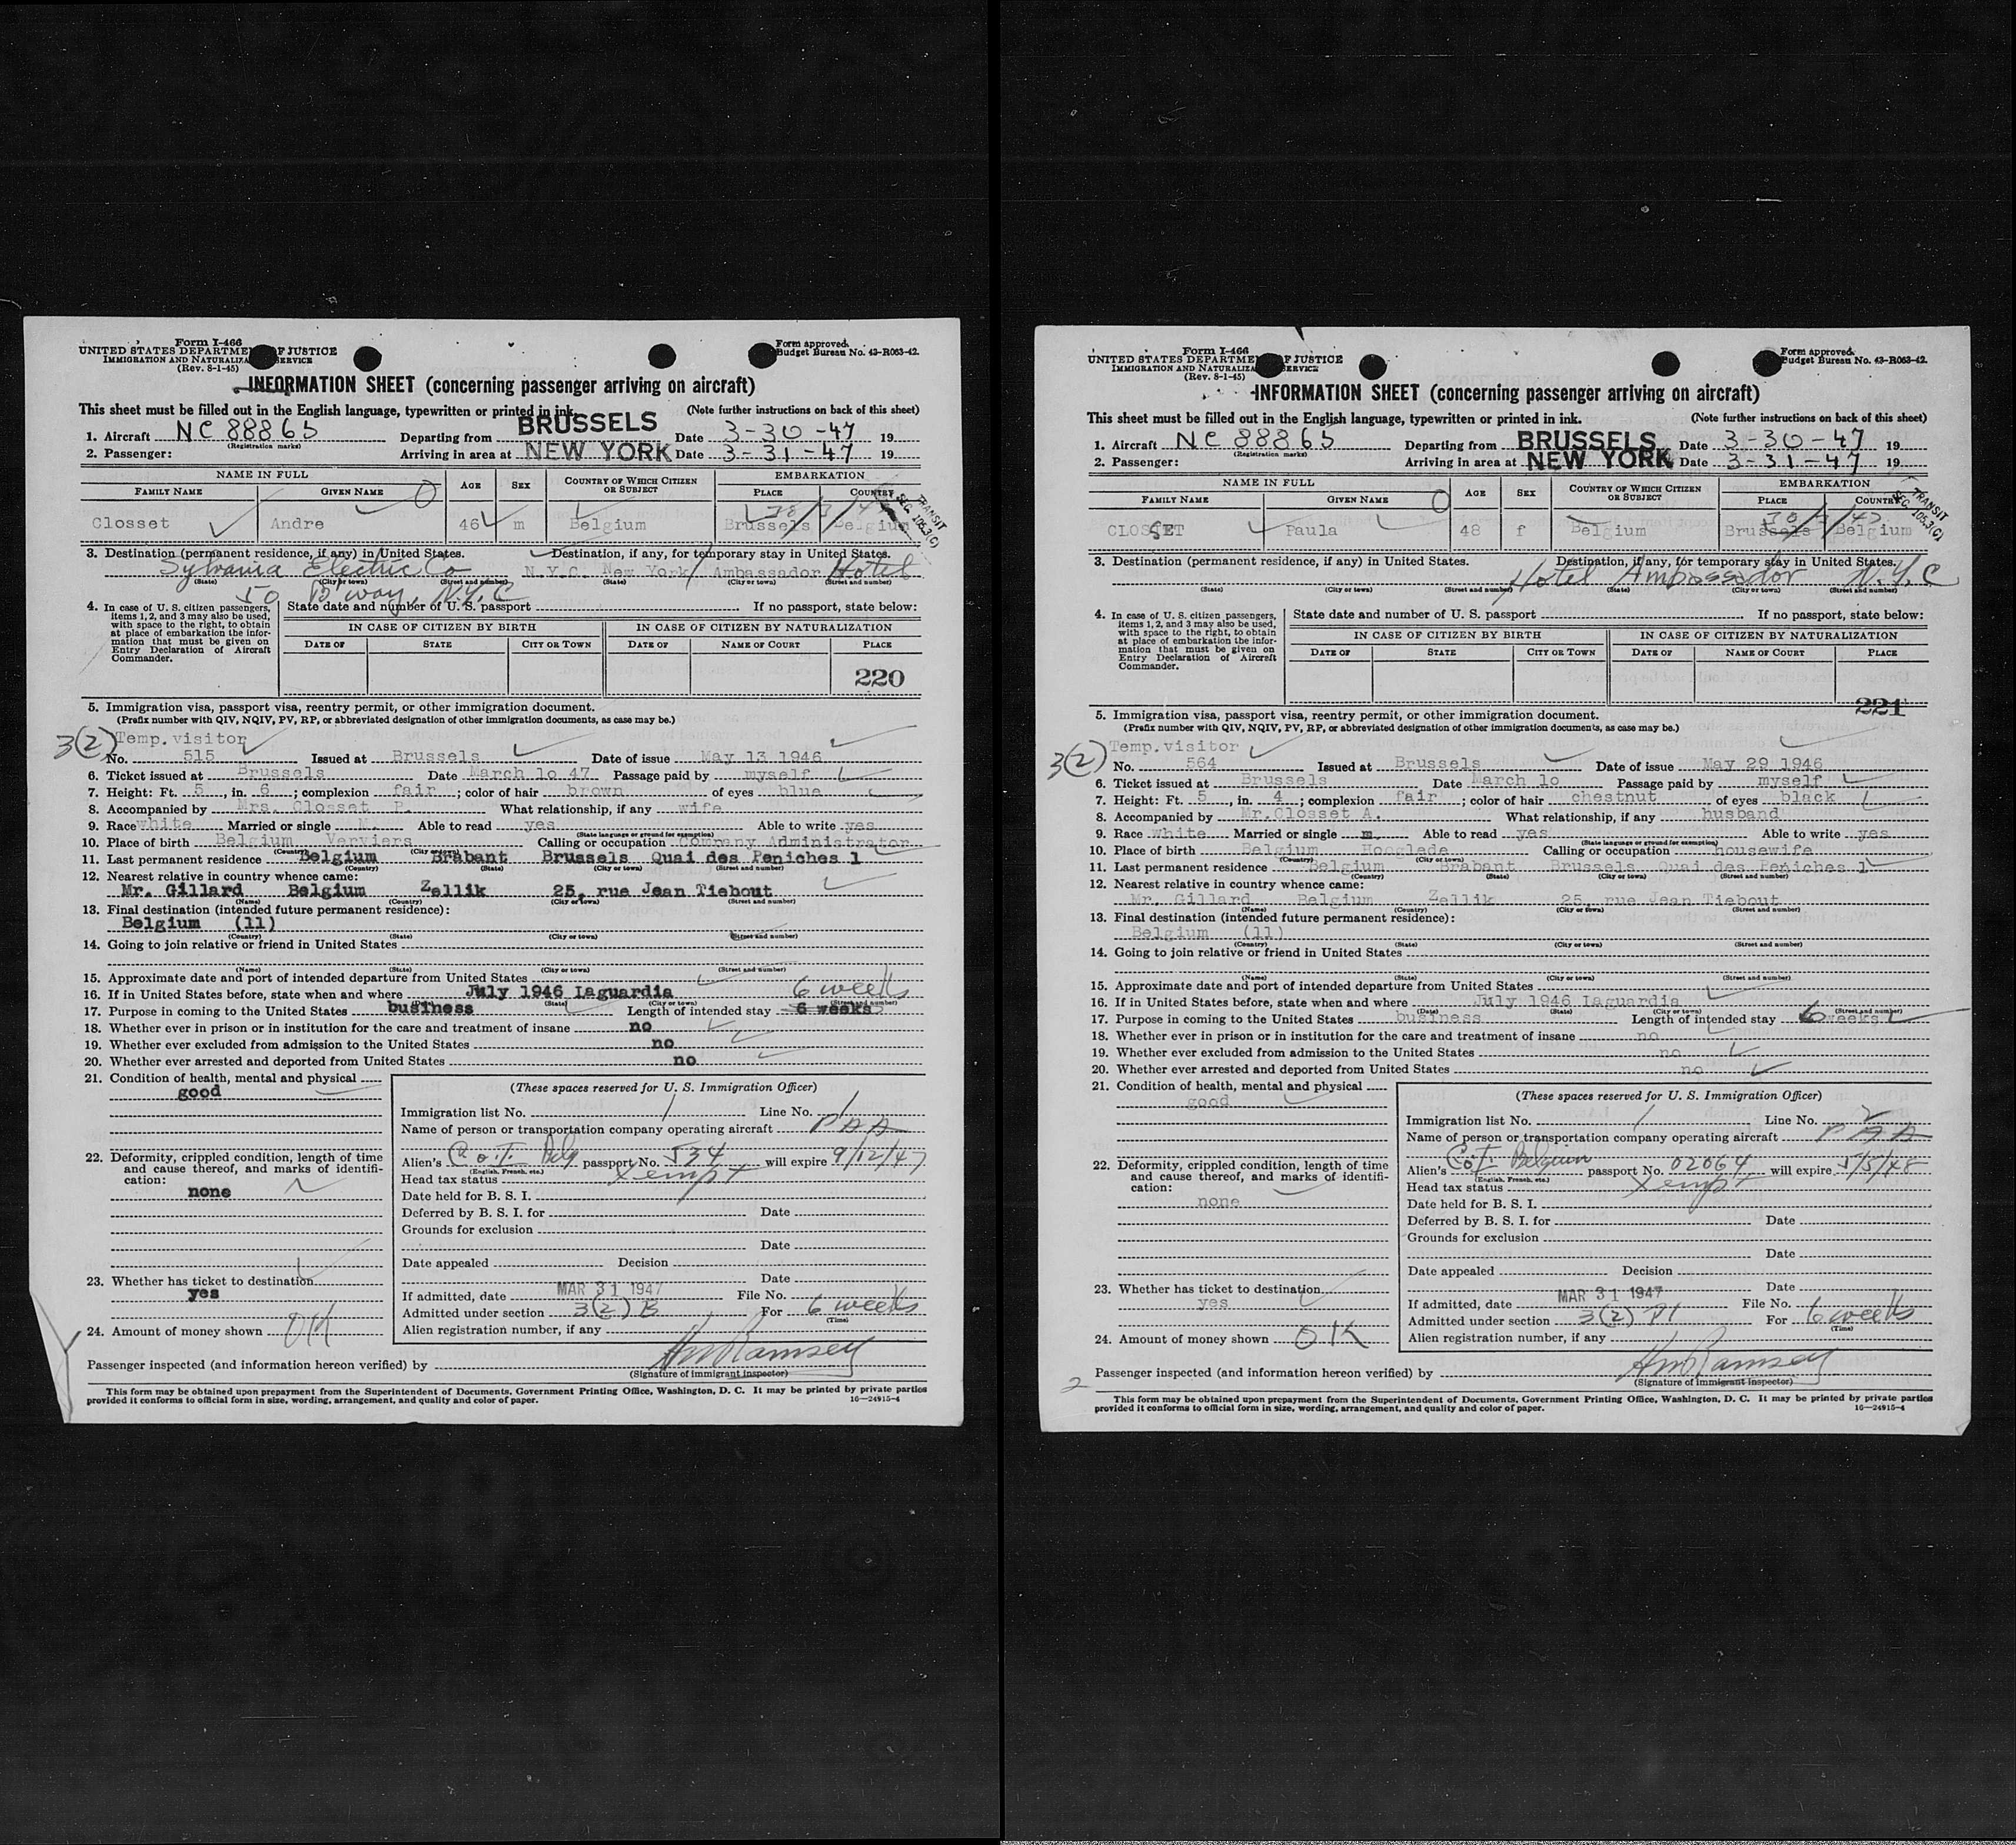 Form I-466
UNITED STATES DEPARTME OF JUSTICE
IMMIGRATION AND NATURALIZA SERVICE
(Rev. 8-1-45)
Form approved.
Budget Bureau No. 43-R063-42.
INFORMATION SHEET (concerning passenger arriving on aircraft)
This sheet must be filled out in the English language, typewritten or printed in ink. (Note further instructions on back of this sheet)
1. Aircraft NC 88865 Departing from BRUSSELS Date 3-30-47 19
(Registration marks)
2. Passenger: Arriving in area at NEW YORK Date 3-31-47 19
NAME IN FULL AGE SEX COUNTRY OF WHICH CITIZEN OR SUBJECT EMBARKATION
FAMILY NAME GIVEN NAME PLACE COUNTRY
TRANSIT SEC. 105.3(C)
Closset Andre 46 m Belgium Brussels Belgium
3. Destination (permanent residence, if any) in United States. Destination, if any, for temporary stay in United States.
Sylvania Electric Co N.Y.C. New York Ambassador Hotel
(State) (City or town) (Street and number) (State) (City or town) (Street and number)
50 B'way, N.Y.C
4. In case of U. S. citizen passengers, items 1, 2, and 3 may also be used, with space to the right, to obtain at place of embarkation the information that must be given on Entry Declaration of Aircraft Commander.
State date and number of U. S. passport If no passport, state below:
IN CASE OF CITIZEN BY BIRTH IN CASE OF CITIZEN BY NATURALIZATION
DATE OF STATE CITY OR TOWN DATE OF NAME OF COURT PLACE
220
5. Immigration visa, passport visa, reentry permit, or other immigration document.
(Prefix number with QIV, NQIV, PV, RP, or abbreviated designation of other immigration documents, as case may be.)
3(2) Temp.visitor
No. 515 Issued at Brussels Date of issue May 13 1946
6. Ticket issued at Brussels Date March 10 47 Passage paid by myself
7. Height: Ft. 5, in. 6; complexion fair; color of hair brown of eyes blue
8. Accompanied by Mrs. Closset P. What relationship, if any wife
9. Race white Married or single M. Able to read yes Able to write yes
(State language or ground for exemption)
10. Place of birth Belgium Verviers Calling or occupation Company Administrator
(Country) (City or town)
11. Last permanent residence Belgium Brabant Brussels Quai des Peniches 1
(Country) (State) (City or town) (Street and number)
12. Nearest relative in country whence came:
Mr. Gillard Belgium Zellik 25, rue Jean Tiebout
(Name) (Country) (City or town) (Street and number)
13. Final destination (intended future permanent residence):
Belgium (11)
(Country) (State) (City or town) (Street and number)
14. Going to join relative or friend in United States
(Name) (State) (City or town) (Street and number)
15. Approximate date and port of intended departure from United States
16. If in United States before, state when and where July 1946 Laguardia 6 weeks
(Date) (State) (City or town) (Street and number)
17. Purpose in coming to the United States business Length of intended stay 6 weeks
18. Whether ever in prison or in institution for the care and treatment of insane no
19. Whether ever excluded from admission to the United States no
20. Whether ever arrested and deported from United States no
21. Condition of health, mental and physical
good
22. Deformity, crippled condition, length of time and cause thereof, and marks of identification:
none
23. Whether has ticket to destination
yes
24. Amount of money shown OK
(These spaces reserved for U. S. Immigration Officer)
Immigration list No. 1 Line No. 1
Name of person or transportation company operating aircraft PAA
Alien's C of I Belg passport No. 534 will expire 9/12/47
(English, French, etc.)
Head tax status Xempt
Date held for B. S. I.
Deferred by B. S. I. for Date
Grounds for exclusion
Date
Date appealed Decision
Date
If admitted, date MAR 31 1947 File No.
Admitted under section 3(2) B For 6 weeks
(Time)
Alien registration number, if any
Passenger inspected (and information hereon verified) by Ramsey
(Signature of immigrant inspector)
This form may be obtained upon prepayment from the Superintendent of Documents, Government Printing Office, Washington, D. C. It may be printed by private parties
provided it conforms to official form in size, wording, arrangement, and quality and color of paper. 16—24915-4
Form I-466
UNITED STATES DEPARTME OF JUSTICE
IMMIGRATION AND NATURALIZA SERVICE
(Rev. 8-1-45)
Form approved.
Budget Bureau No. 43-R063-42.
INFORMATION SHEET (concerning passenger arriving on aircraft)
This sheet must be filled out in the English language, typewritten or printed in ink. (Note further instructions on back of this sheet)
1. Aircraft NC 88865 Departing from BRUSSELS Date 3-30-47 19
(Registration marks)
2. Passenger: Arriving in area at NEW YORK Date 3-31-47 19
NAME IN FULL AGE SEX COUNTRY OF WHICH CITIZEN OR SUBJECT EMBARKATION
FAMILY NAME GIVEN NAME PLACE COUNTRY
TRANSIT SEC. 105.3(C)
CLOSSET Paula 48 f Belgium Brussels Belgium
3. Destination (permanent residence, if any) in United States. Destination, if any, for temporary stay in United States.
Hotel Ambassador N.Y.C
(State) (City or town) (Street and number) (State) (City or town) (Street and number)
4. In case of U. S. citizen passengers, items 1, 2, and 3 may also be used, with space to the right, to obtain at place of embarkation the information that must be given on Entry Declaration of Aircraft Commander.
State date and number of U. S. passport If no passport, state below:
IN CASE OF CITIZEN BY BIRTH IN CASE OF CITIZEN BY NATURALIZATION
DATE OF STATE CITY OR TOWN DATE OF NAME OF COURT PLACE
221
5. Immigration visa, passport visa, reentry permit, or other immigration document.
(Prefix number with QIV, NQIV, PV, RP, or abbreviated designation of other immigration documents, as case may be.)
3(2) Temp.visitor
No. 564 Issued at Brussels Date of issue May 29 1946
6. Ticket issued at Brussels Date March 10 Passage paid by myself
7. Height: Ft. 5, in. 4; complexion fair; color of hair chestnut of eyes black
8. Accompanied by Mr.Closset A. What relationship, if any husband
9. Race white Married or single m Able to read yes Able to write yes
(State language or ground for exemption)
10. Place of birth Belgium Hooglede Calling or occupation housewife
(Country) (City or town)
11. Last permanent residence Belgium Brabant Brussels Quai des Peniches 1
(Country) (State) (City or town) (Street and number)
12. Nearest relative in country whence came:
Mr. Gillard Belgium Zellik 25, rue Jean Tiebout
(Name) (Country) (City or town) (Street and number)
13. Final destination (intended future permanent residence):
Belgium (11)
(Country) (State) (City or town) (Street and number)
14. Going to join relative or friend in United States
(Name) (State) (City or town) (Street and number)
15. Approximate date and port of intended departure from United States
16. If in United States before, state when and where July 1946 Laguardia
(Date) (State) (City or town) (Street and number)
17. Purpose in coming to the United States business Length of intended stay 6 weeks
18. Whether ever in prison or in institution for the care and treatment of insane no
19. Whether ever excluded from admission to the United States no
20. Whether ever arrested and deported from United States no
21. Condition of health, mental and physical
good
22. Deformity, crippled condition, length of time and cause thereof, and marks of identification:
none
23. Whether has ticket to destination
yes
24. Amount of money shown OK
(These spaces reserved for U. S. Immigration Officer)
Immigration list No. 1 Line No. 2
Name of person or transportation company operating aircraft PAA
Alien's C of I Belgium passport No. 02064 will expire 5/5/48
(English, French, etc.)
Head tax status Xempt
Date held for B. S. I.
Deferred by B. S. I. for Date
Grounds for exclusion
Date
Date appealed Decision
Date
If admitted, date MAR 31 1947 File No.
Admitted under section 3(2) For 6 weeks
(Time)
Alien registration number, if any
Passenger inspected (and information hereon verified) by Ramsey
(Signature of immigrant inspector)
2
This form may be obtained upon prepayment from the Superintendent of Documents, Government Printing Office, Washington, D. C. It may be printed by private parties
provided it conforms to official form in size, wording, arrangement, and quality and color of paper. 16—24915-4